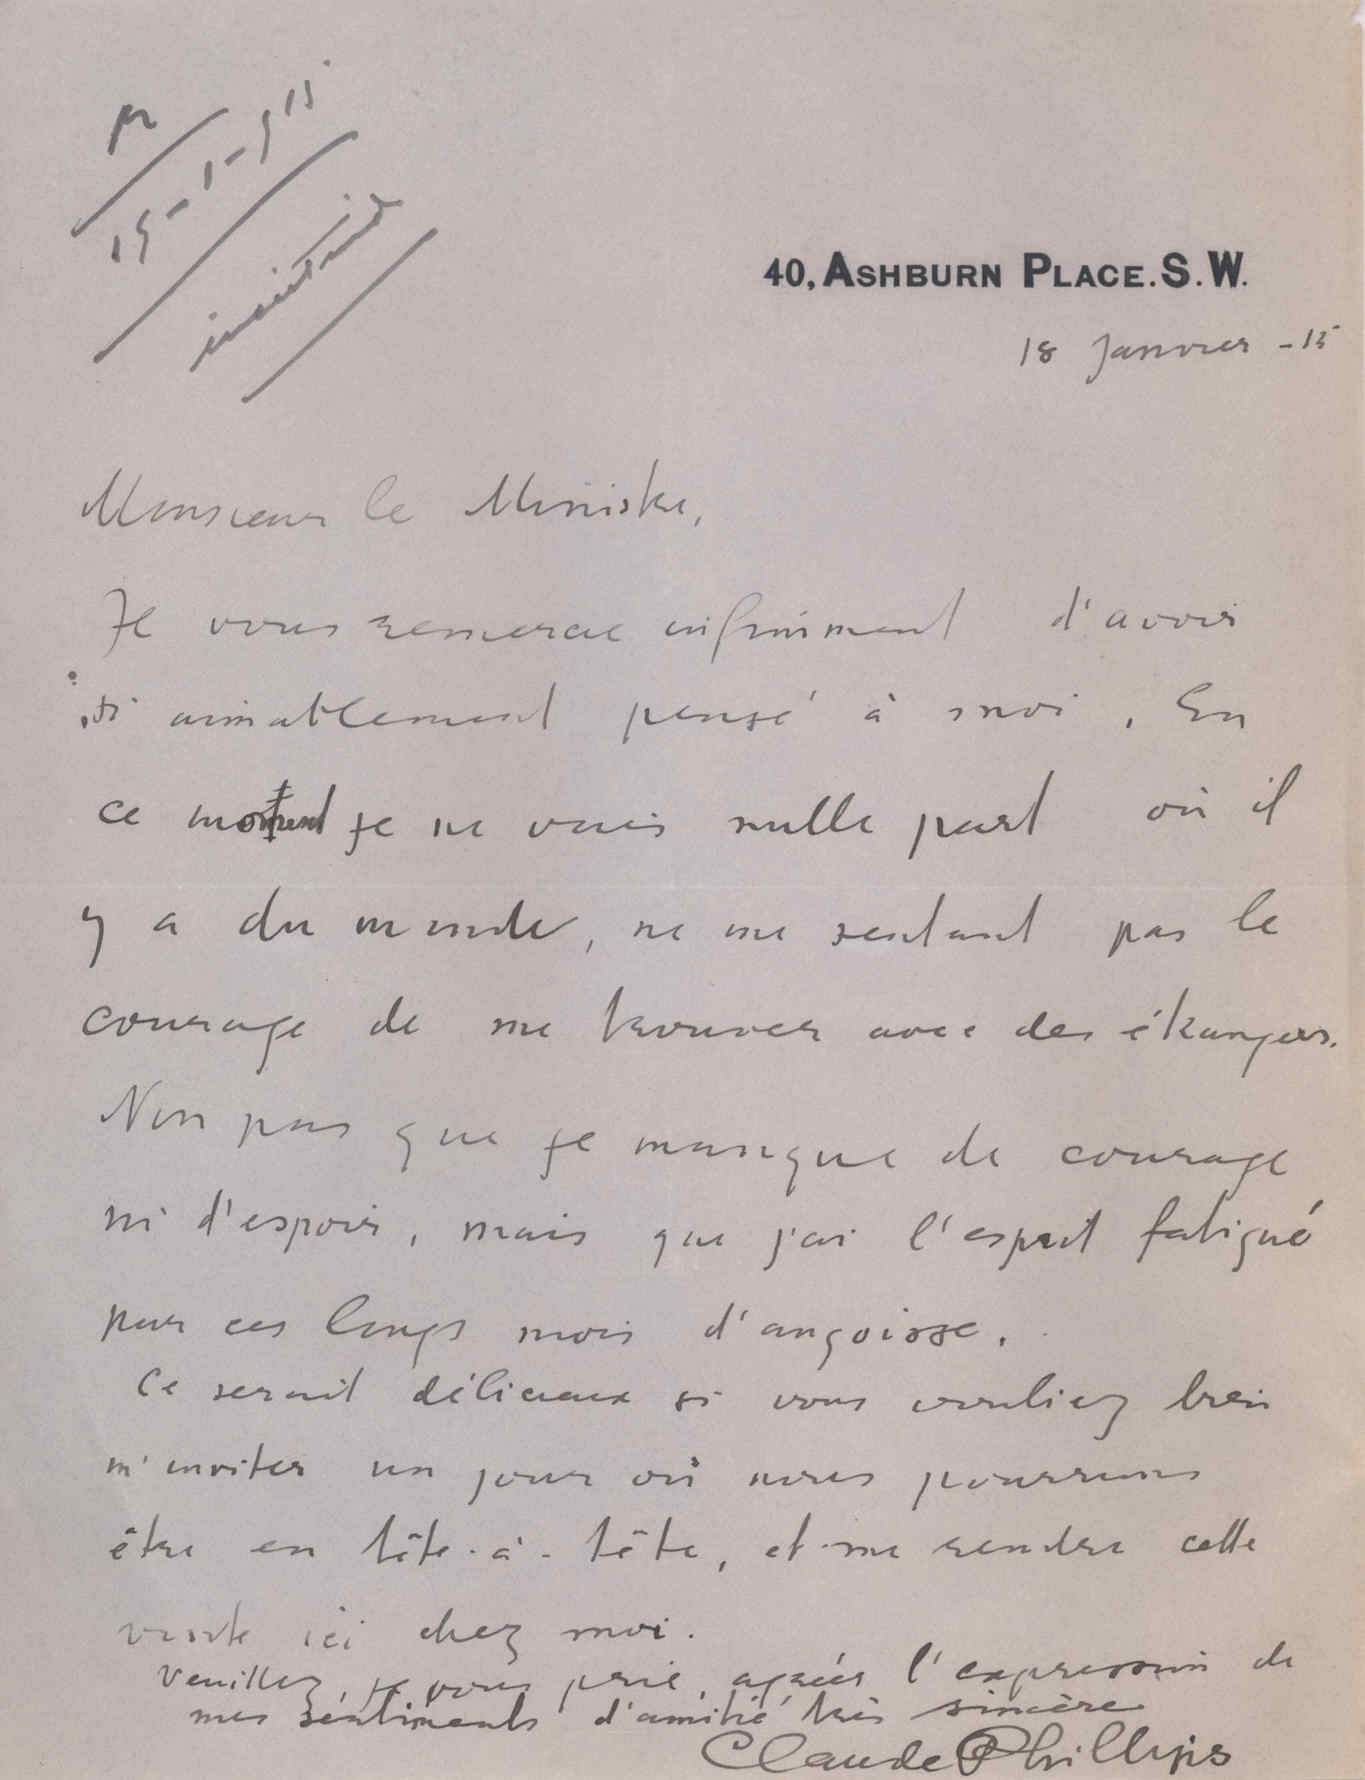 19-1-915
40, ASHBURN PLACE. S. W.
18 Janvier -15
Monsieur le Ministre,
Je vous remercie infiniment d'avoir
si aimablement pensé à moi. En
ce moment je ne vais nulle part où il
y a du monde, ne me sentant pas le
courage de me trouver avec des étrangers.
Non pas que je manque de courage
ni d'espoir, mais que j'ai l'esprit fatigué
par ces longs mois d'angoisse.
Ce serait délicieux si vous vouliez bien
m'inviter un jour où nous pourrions
être en tête-à-tête, et me rendre cette
visite ici chez moi.
Veuillez, je vous prie, agréer l'expression de
mes sentiments d'amitié très sincère
Claude Phillips